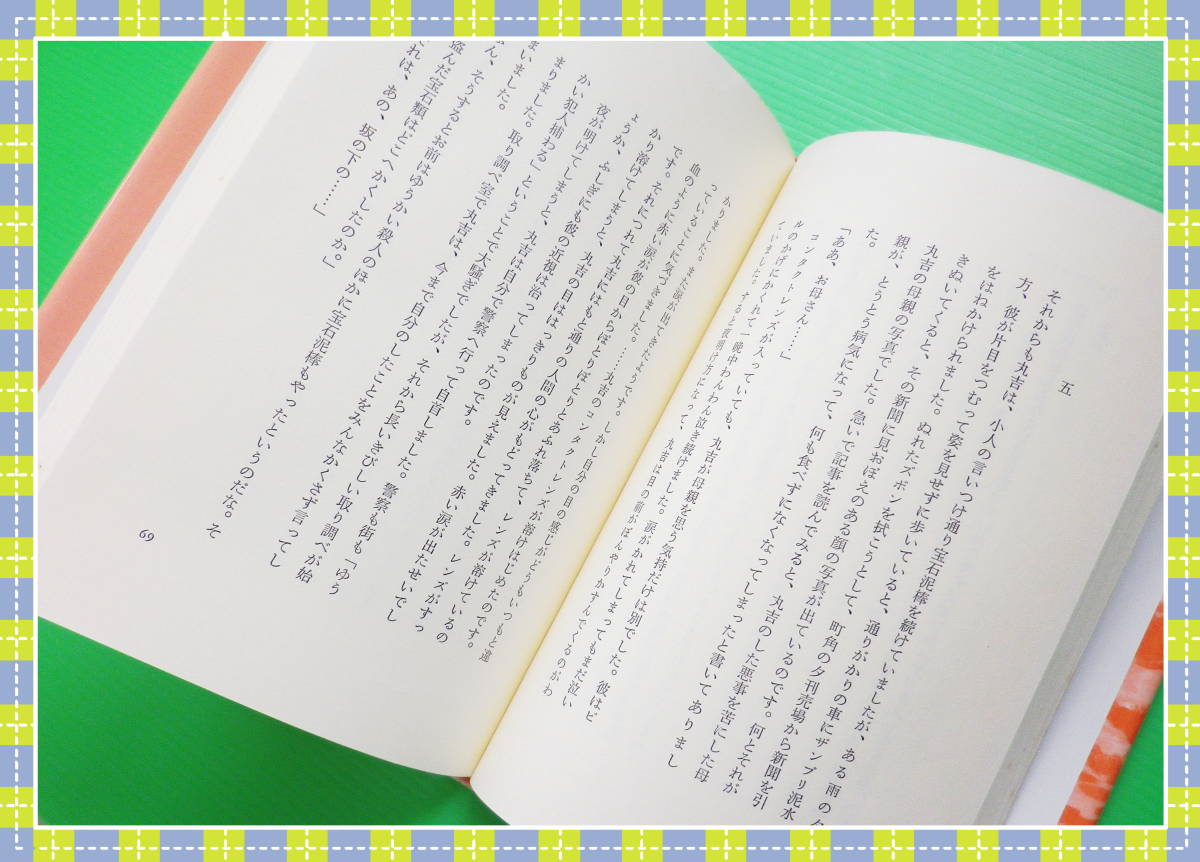 五
それからも丸吉は、小人の言いつけ通り宝石泥棒を続けていましたが、ある雨の夕
方、彼が片目をつむって姿を見せずに歩いていると、通りがかりの車にザンブリ泥水
をはねかけられました。ぬれたズボンを拭こうとして、町角の夕刊売場から新聞を引
きぬいてくると、その新聞に見おぼえのある顔の写真が出ているのです。何とそれが
丸吉の母親の写真でした。急いで記事を読んでみると、丸吉のした悪事を苦にした母
親が、とうとう病気になって、何も食べずになくなってしまったと書いてありまし
た。
「ああ、お母さん……」
コンタクトレンズが入っていても、丸吉が母親を思う気持だけは別でした。彼はビ
ルのかげにかくれて一晩中わんわん泣き続けました。涙がかれてしまってもまだ泣い
ていました。すると夜明け方になって、丸吉は目の前がぼんやりかすんでくるのがわ
かりました。また涙が出てきたようです。しかし自分の目の感じがどうもいつもと違
っていることに気づきました。……丸吉のコンタクトレンズが溶けはじめたのです。
血のように赤い涙が彼の目からぽとりぽとりとあふれ落ちて、レンズが溶けているの
です。それにつれて丸吉にはもと通りの人間の心がもどってきました。レンズがすっ
かり溶けてしまうと、丸吉の目ははっきりものが見えました。赤い涙が出たせいでし
ょうか、ふしぎにも彼の近視は治ってしまったのです。
夜が明けてしまうと、丸吉は自分で警察へ行って自首しました。警察も街も「ゆう
かい犯人捕わる」ということで大騒ぎでしたが、それから長いきびしい取り調べが始
まりました。取り調べ室で丸吉は、今まで自分のしたことをみんなかくさず言ってし
まいました。
ん、そうするとお前はゆうかい殺人のほかに宝石泥棒もやったというのだな。そ
盗んだ宝石類はどこへかくしたのか。」
れは、あの、坂の下の……」
69